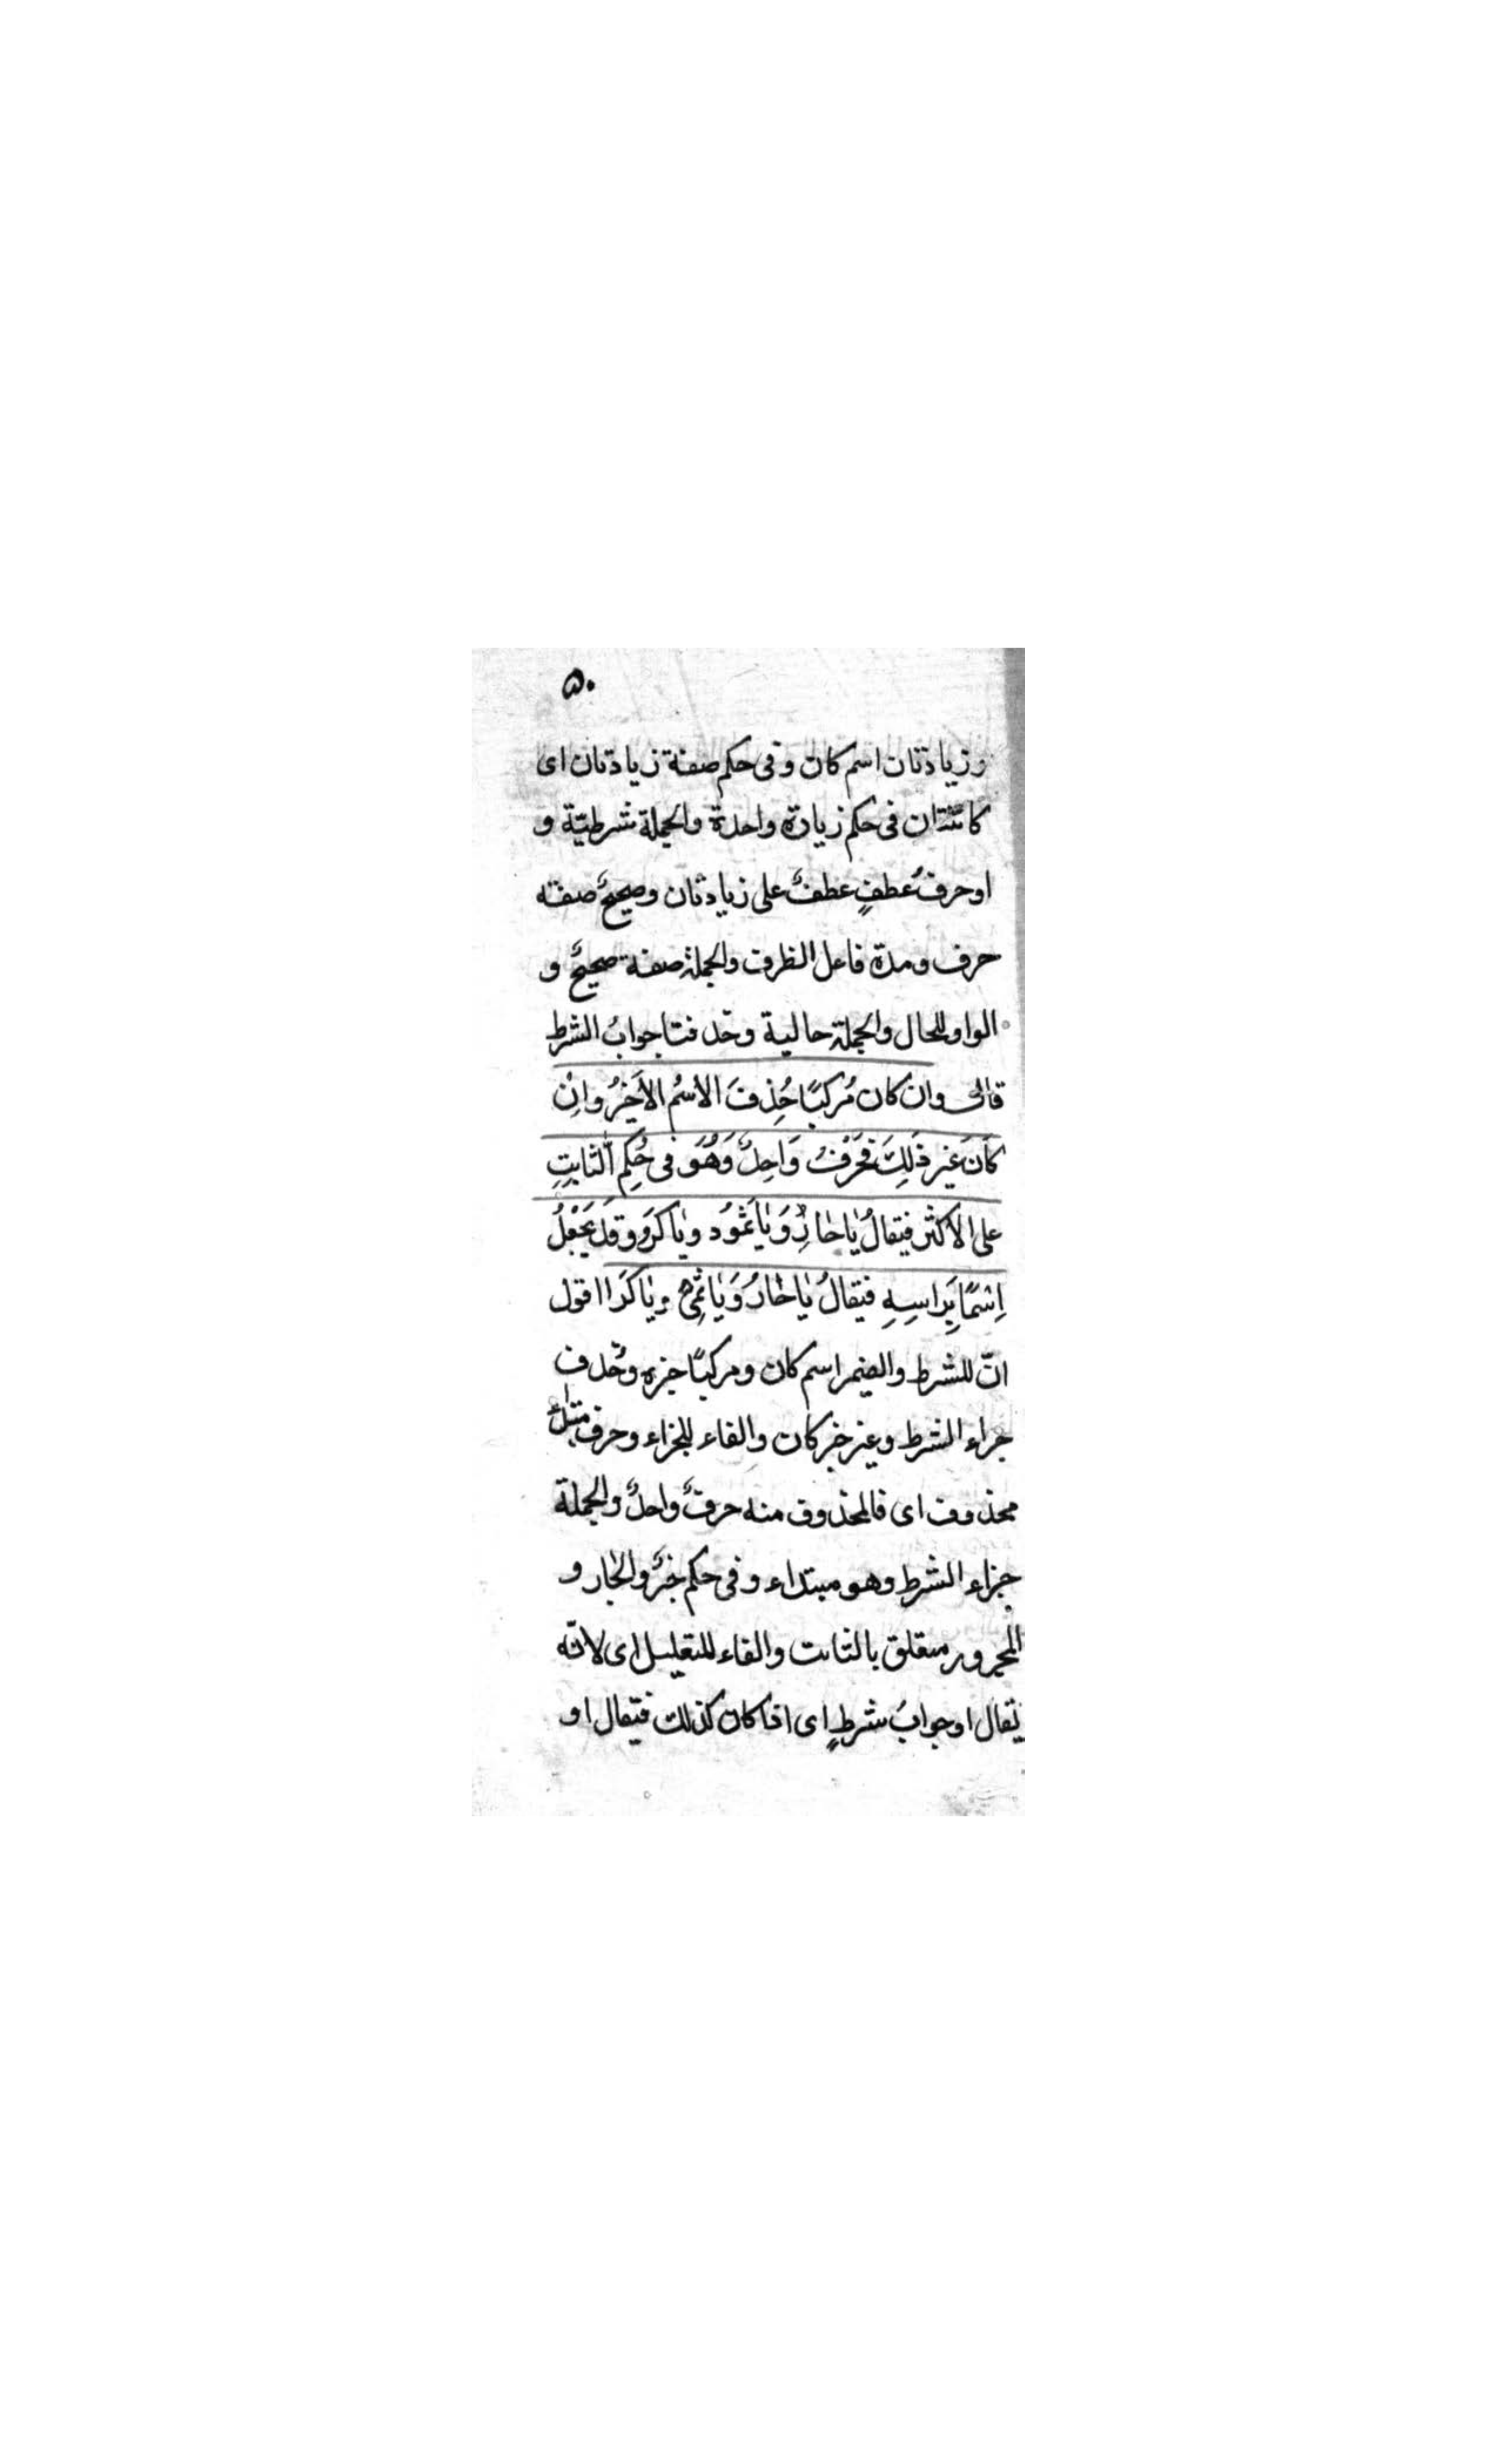 ۵۰
وزيادتان اسم كان وفى حكم صفة زيادتان اى
كائنتان فى حكم زيادة واحدة والجملة شرطيّة و
او حرفُ عطفٍ عطفٌ على زيادتان وصحيحٌ صفته
حرف ومدة فاعل الظرف والجملة صفة صحيحٌ و
الواو للحال والجملة حالية وحذفتا جوابُ الشرط
قال وان كان مُركبًا حُذِفَ الاسْمُ الأخيرُ وانْ
كَانَ غيرَ ذلِكَ فَحَرْفٌ وَاحِدٌ وَهُوَ فى حُكِم الثابِتِ
على الاكثر فيقالُ يٰا حٰارِ وَيٰا ثَمُو د ويٰا كَرَوَ وقَد يَجْعَلُ
اِسْمًا بِرَاسِهِ فيقالُ يٰا حٰارُ وَيٰا ثَمِى ويٰا كَرَا اقول
انّ للشرط والضمير اسم كان ومركبًا خبره وحُذف
جزاء الشرط وغير خبر كان والفاء للجزاء وحرف مبتداء
محذوف اى فالمحذوف منه حرفٌ واحدٌ والجملة
جزاء الشرط وهو مبتداء وفى حكم خبرٌ والجار و
المجرور متعلق بالثابت والفاء للتعليل اى لانّه
يقال او جوابُ شرطٍ اى اذا كان كذلك فيقال او